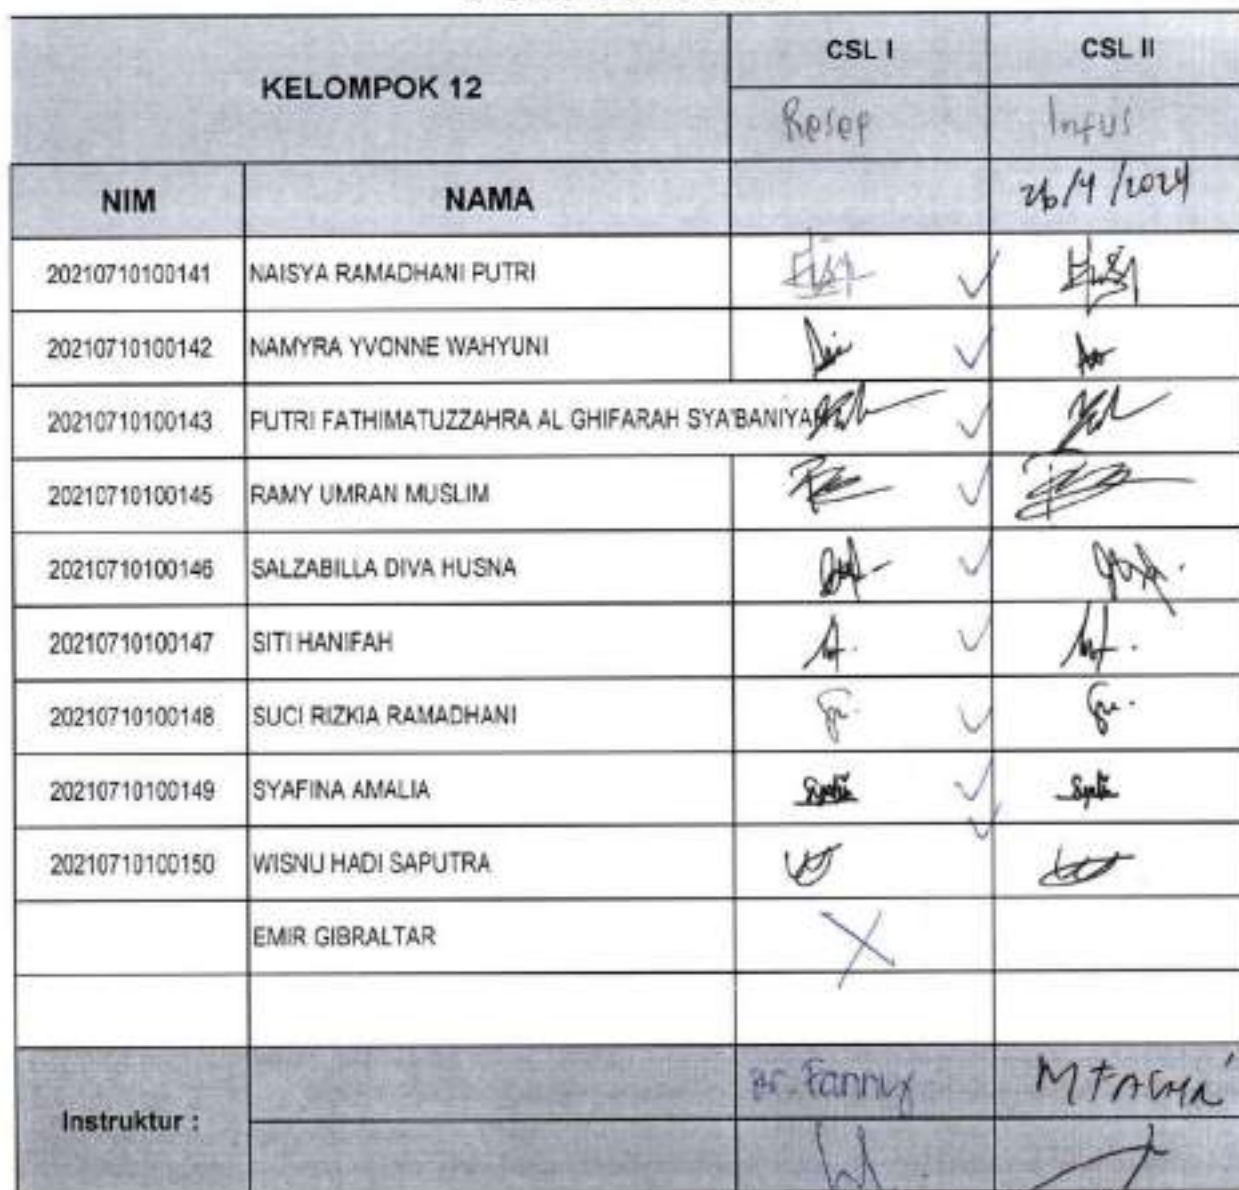 KELOMPOK 12 CSL I CSL II
Resep Infus
NIM NAMA 26/4/2024
20210710100141 NAISYA RAMADHANI PUTRI
20210710100142 NAMYRA YVONNE WAHYUNI
20210710100143 PUTRI FATHIMATUZZAHRA AL GHIFARAH SYA'BANIYAH
20210710100145 RAMY UMRAN MUSLIM
20210710100146 SALZABILLA DIVA HUSNA
20210710100147 SITI HANIFAH
20210710100148 SUCI RIZKIA RAMADHANI
20210710100149 SYAFINA AMALIA
20210710100150 WISNU HADI SAPUTRA
EMIR GIBRALTAR
Instruktur : Fanny